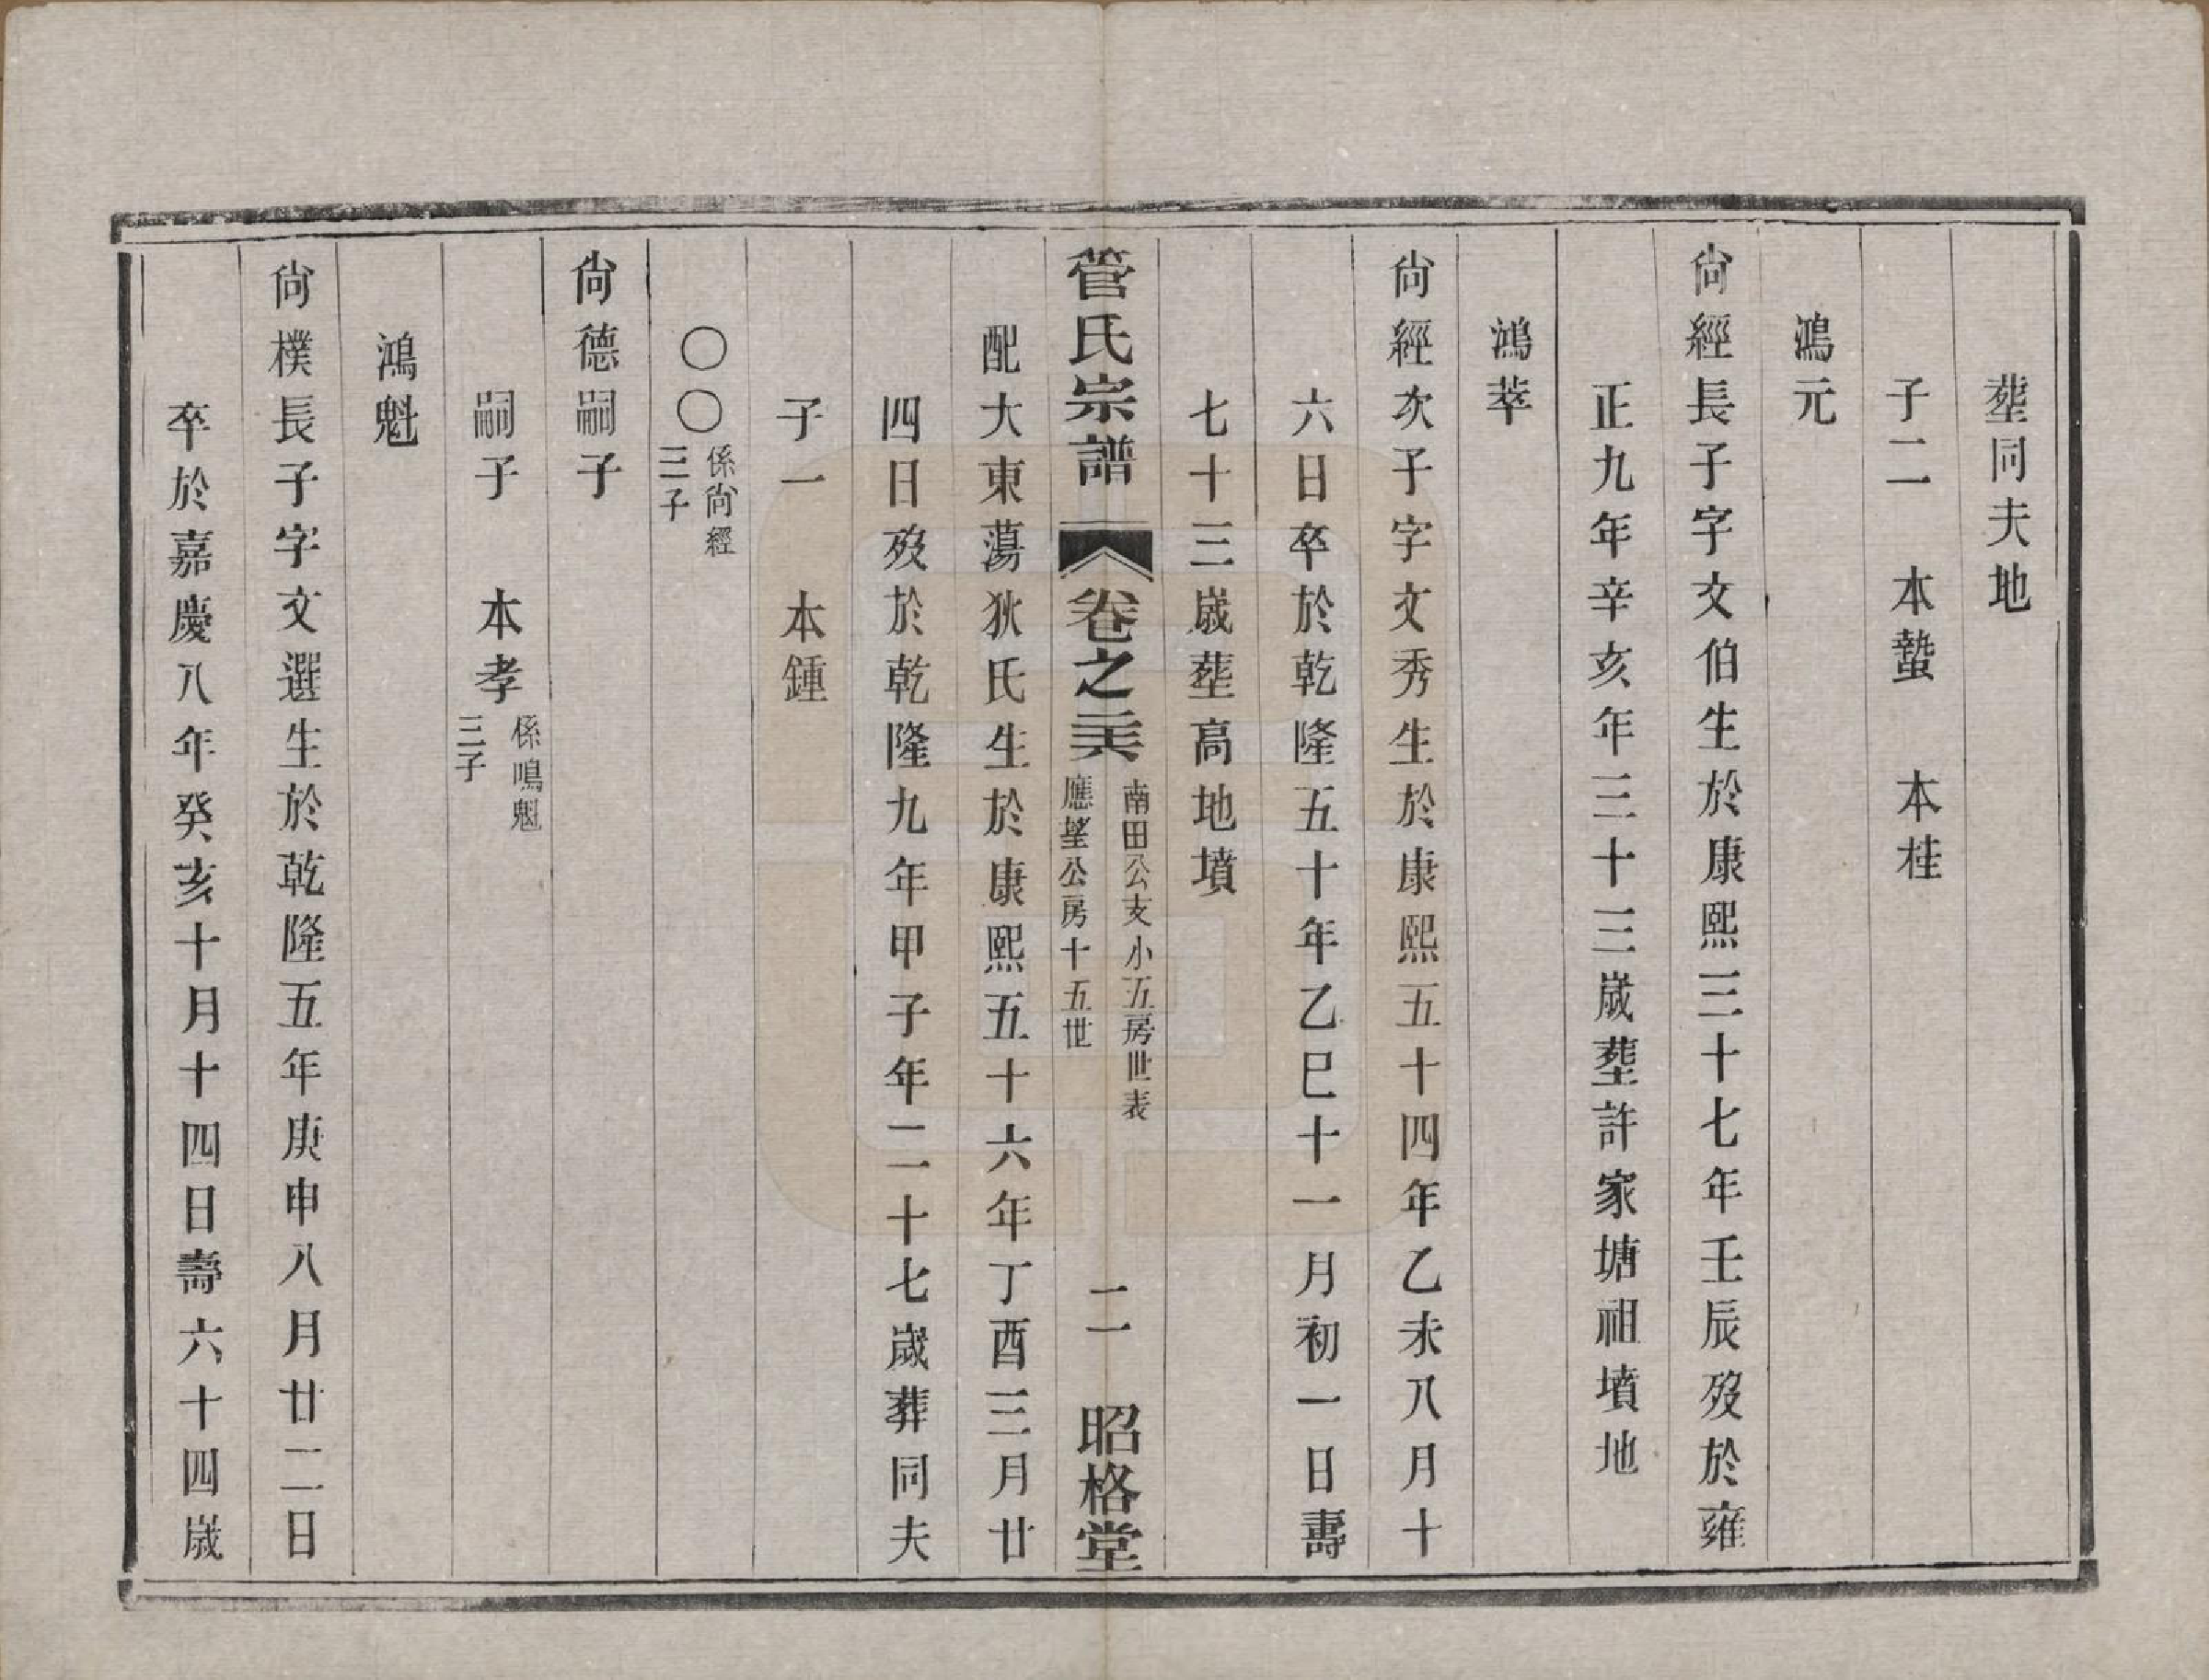 塟同夫地
子二　本蟄　本桂
鴻元
尙經長子字文伯生於康熙三十七年壬辰歿於雍
正九年辛亥年三十三歲塟許家塘祖墳地
鴻萃
尙經次子字文秀生於康熙五十四年乙未八月十
六日卒於乾隆五十年乙巳十一月初一日壽
七十三歲塟高地墳
管氏宗譜　卷之二六　南田公支小五房世表
應塋公房十五世　二　昭格堂
配大東蕩狄氏生於康熙五十六年丁酉三月廿
四日歿於乾隆九年甲子年二十七歲葬同夫
子一　本鍾
〇〇係尙經
三子
尙德嗣子
嗣子　本孝係鳴魁
三子
鴻魁
尙樸長子字文選生於乾隆五年庚申八月廿二日
卒於嘉慶八年癸亥十月十四日壽六十四歲